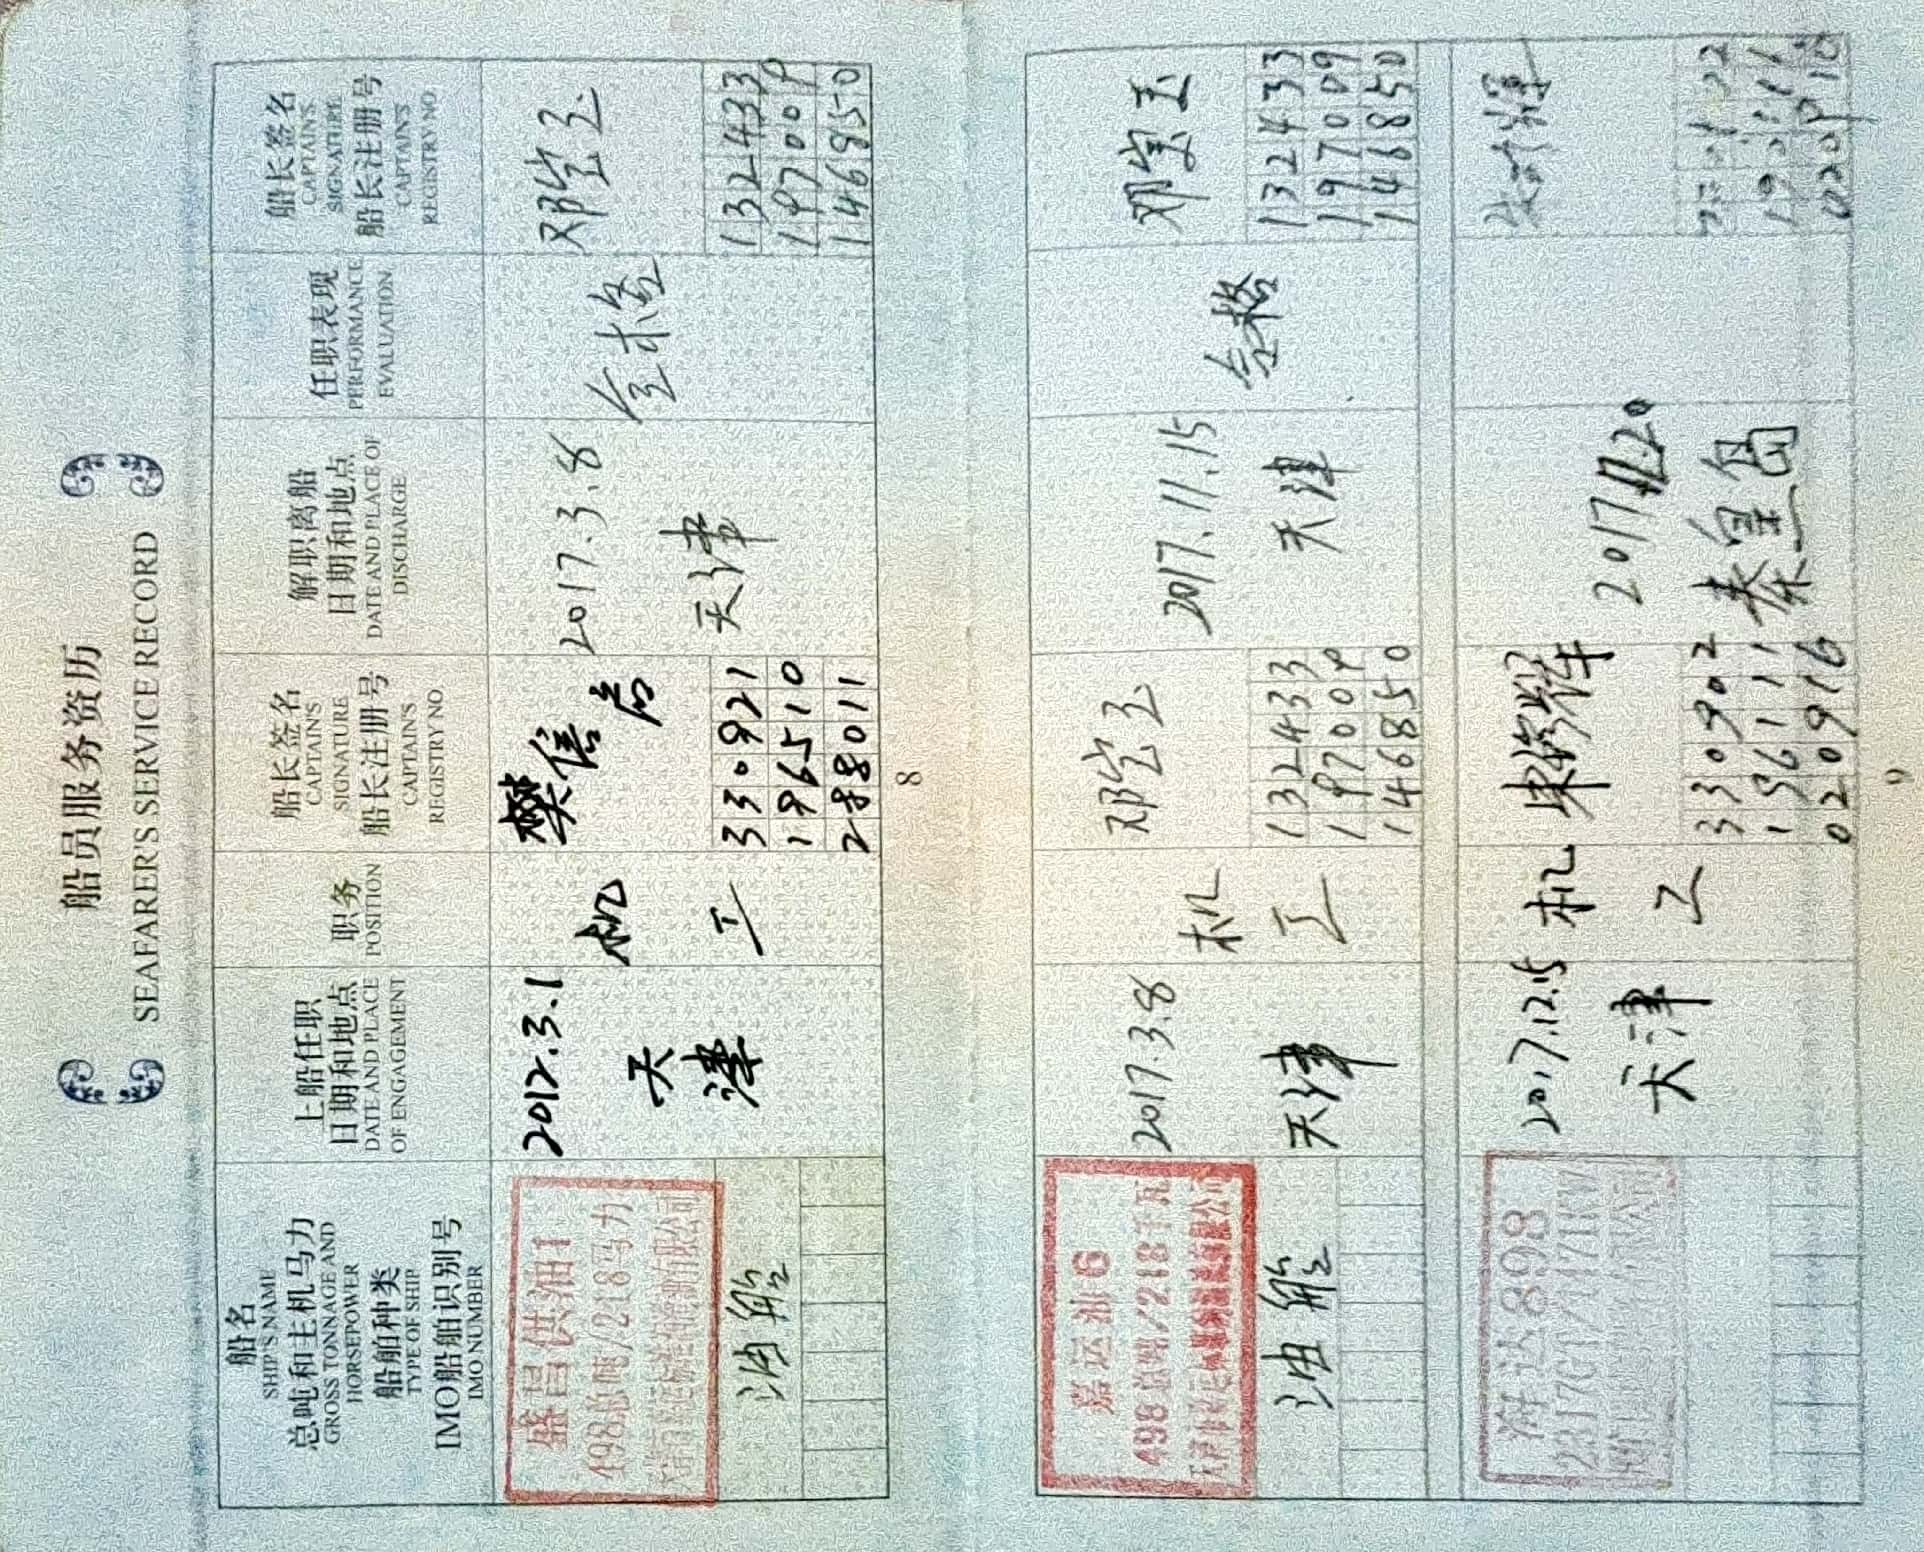 船员服务资历
SEAFARER'S SERVICE RECORD
船名
SHIP'S NAME
总吨和主机马力
GROSS TONNAGE AND
HORSEPOWER
船舶种类
TYPE OF SHIP
IMO船舶识别号
IMO NUMBER
上船任职
日期和地点
DATE AND PLACE
OF ENGAGEMENT
职务
POSITION
船长签名
CAPTAIN'S
SIGNATURE
船长注册号
CAPTAIN'S
REGISTRY NO
解职离船
日期和地点
DATE AND PLACE OF
DISCHARGE
任职表现
PERFORMANCE
EVALUATION
船长签名
CAPTAIN'S
SIGNATURE
船长注册号
CAPTAIN'S
REGISTRY NO
盛昌供油1
498总吨/218马力
油船
2012.3.1
天
津
机
工
樊
330921
196510
288011
2017.3.8
天津
合格
邓宝玉
132433
197009
146850
8
嘉运油6
498总吨/218千瓦
油船
2017.3.8
天津
机
工
邓宝玉
132433
197009
146850
2017.11.15
天津
合格
邓宝玉
132433
197009
146850
海达898
2317GT/1471KW
2017.12.15
天津
机
工
330902
196111
020916
秦皇岛
9